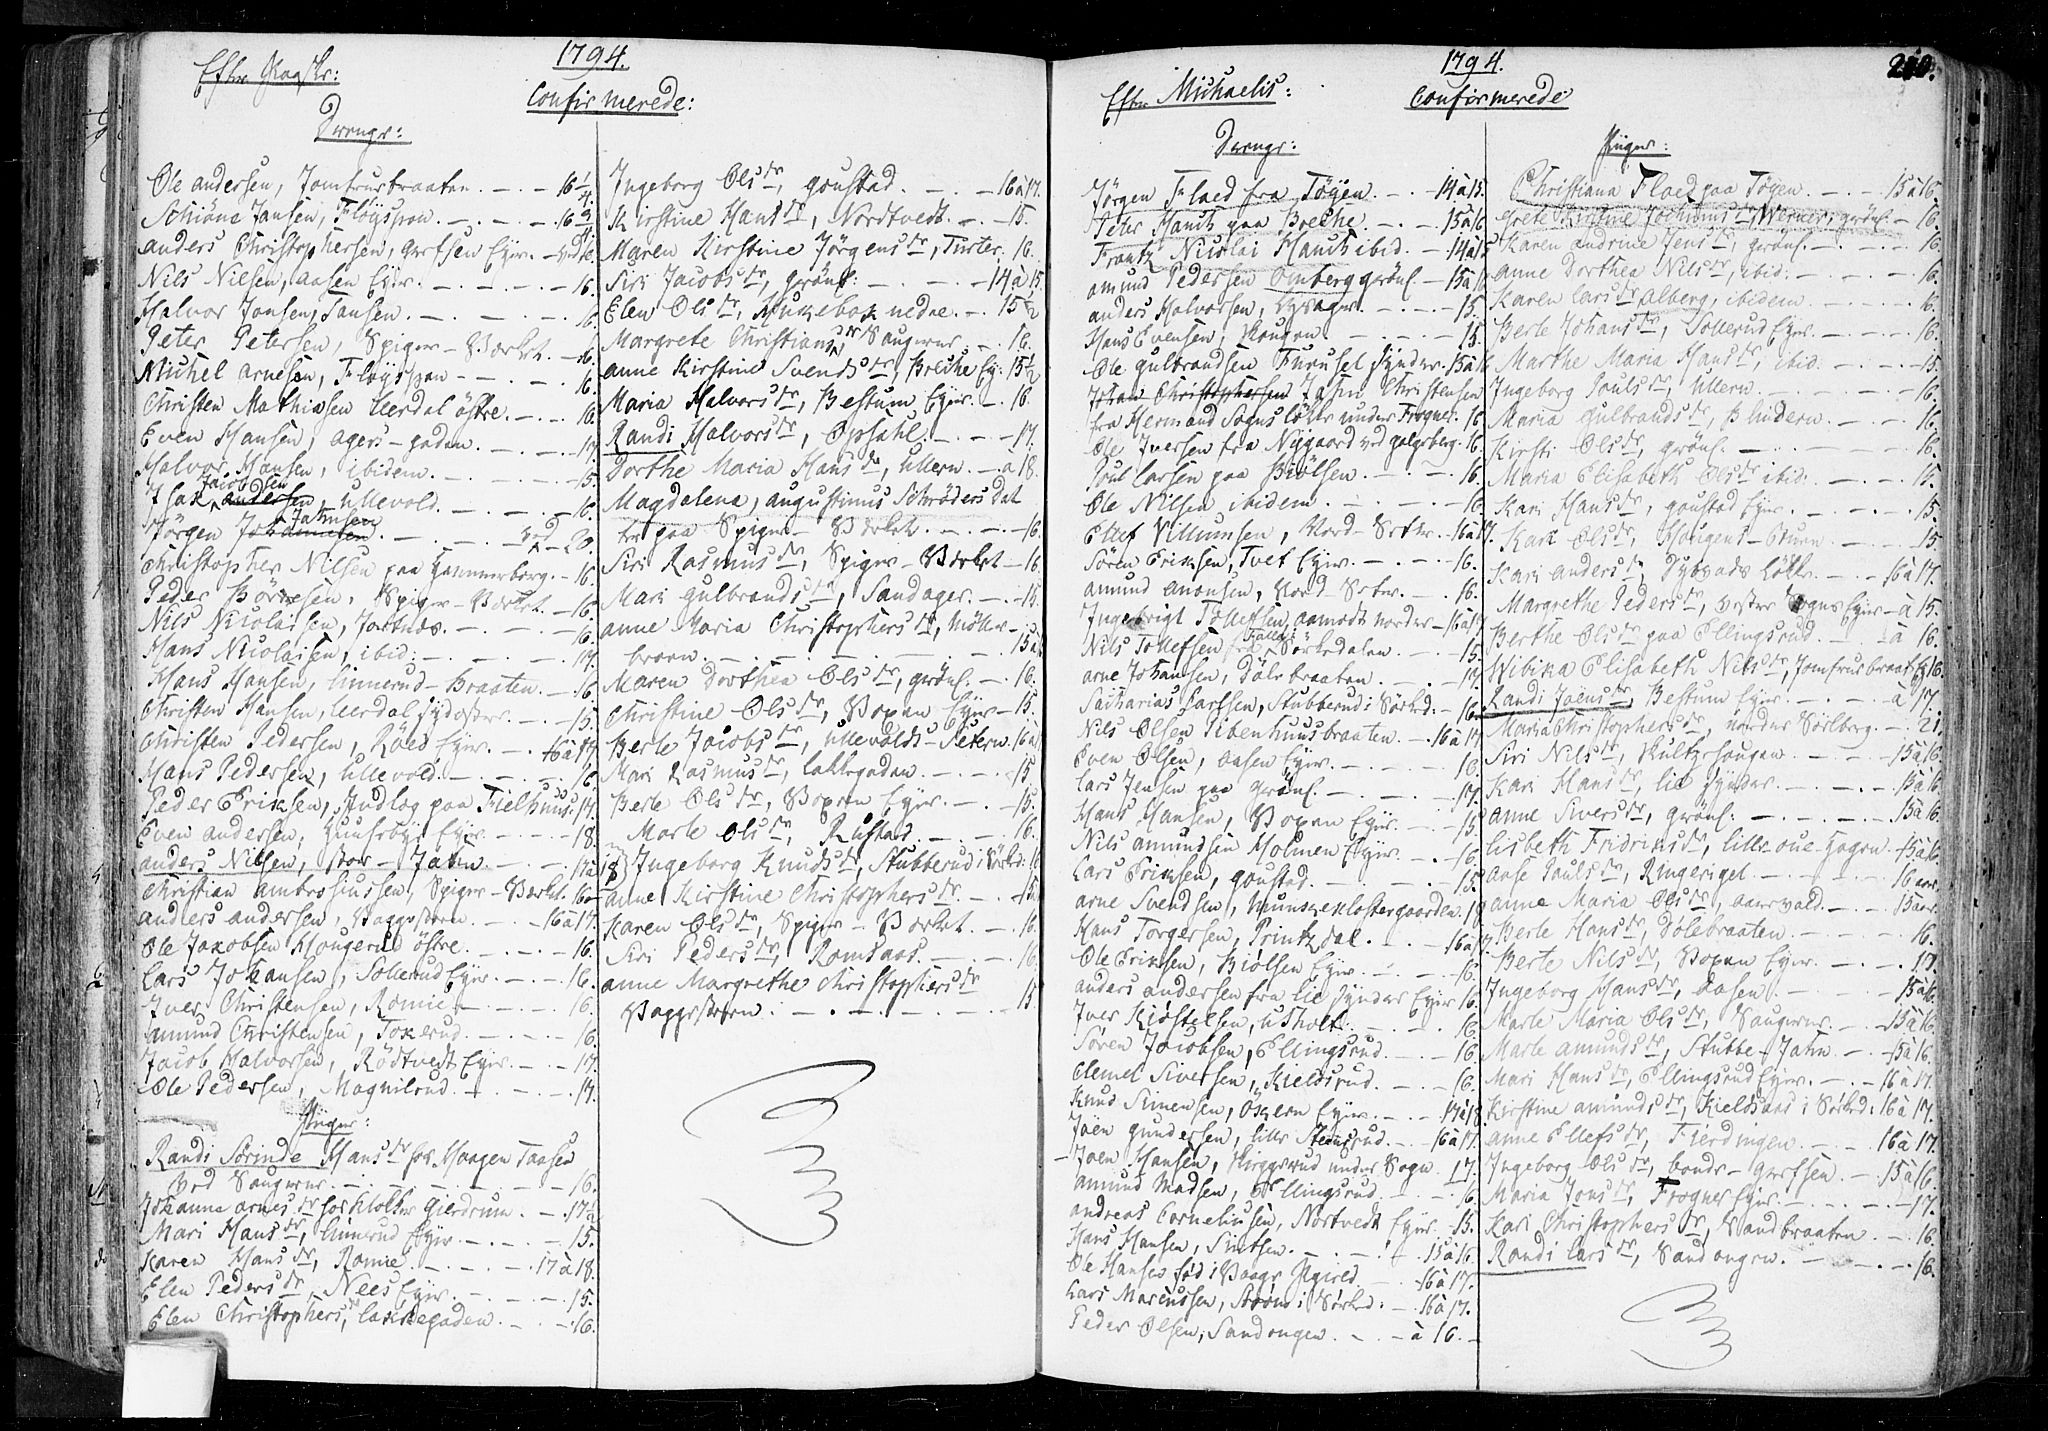 1794.
Efter Paaske:
Confirmerede:
Drenge:
Ole andersen, Jomfrurbraaten. — 16 1/4.
Schiöne Jansen, Fløyspon. — 16
anders Christophersen,
Nils Nielsen, aasen Eyer. — 16.
Halvor Jonsen, Tansen. — 16.
Peter Petersen, Spiger-Verket. — 16.
Michel arnesen, Fløyspon — 16.
Christen Mathiesen Leerdal östre. — 16.
Even Hansen, agers-gaden. — 17
Halvor Hansen, ibidem. — 15.
Isac Jacobsen andersen, Ullevold. — 16.
Jørgen Jahnsen Johannesen. — 20.
Christopher Nilsen paa Hammerborg. — 16.
Peder Börresen, Spiger-Verket — 16
Nils Nicolaisen, — 16.
Hans Nicolaisen, ibid: — 17.
Hans Hansen, Linnerud-braaten. — 16
Christen Hansen, Leerdal — 15.
Christen Pedersen, Röed Eyer. — 16 à 17
Hans Pedersen, Ullevold. — 16
Peder Eriksen, Indlog paa 17.
Even andersen, Eyer — 18.
anders Nilsen, stor-Jahn. — 17 à 18
Christian ambrosiussen, Spiger-Verket. 16
anders andersen, Baggesteen. — 16 à 17.
Ole Jakobsen Hougerud östre. — 16.
Lars Johansen, Sollerud Eyer. — 16.
Iver Christensen, Romie — 16.
amund Christensen, Tokerud. — 16.
Jacob Halvorsen, Rödtvedt Eyer. — 17.
Ole Pedersen, Magnilrud — 17.
Piger:
Randi Sörinde Hansdr for Haagen Taasen
ved Saugene. — 16.
Johanna arnesdr for Klokker Gierdrum. — 17 1/2
Mari Hansdr, Linnerud Eyer. — 15.
Karen Hansdr, Romie. — 17 à 18.
Elen Pedersdr, Nees Eyer. — 15.
Elen Christophersdr, Lakkegaden. — 16.
Ingeborg Olsdr, goustad. — 16 à 17.
Kirstine Hansdr, Nordtvedt. — 15.
Maren Kirstine Jörgensdr, Turter. 16.
Siri Jacobsdr, grönl: — 14 à 15.
Elen Olsdr, Munkebek nedre. — 15 1/2
Margrete Christiansdr, Saugene — 16.
anne Kirstine Svendsdr, Breche Ey: 15 1/2
Maria Halvorsdr, Bestum Eyer. — 16.
Randi Halvorsdr, Opsahl. — 17.
Dorthe Maria Hansdr, Ullern. — à 18.
Magdalena, augustinus Schröders Dat
ter paa Spiger-Verket — 16.
Siri Rasmusdr, Spiger-Verket — 16
Mari gulbrandsdr, Sandager. — 15.
anne Maria Christophersdr, Möller-
braaten. — 15 à
Maren Dorthea Olsdr, grönl. — 16.
Christine Olsdr, Voxen Eyer — 15.
Berte Jacobsdr, Ullevolds-Setern. 16 à 17
Mari Rasmusdr, Lakkegaden. — 15.
Berte Olsdr, Voxen Eyer. — 15.
Marte Olsdr, Rustad. — 16.
Ingeborg Knudsdr, Stubberud i Sörked: 16
anne Kirstine Christophersdr. — 15
Karen Olsdr, Spiger-Verket. — 16.
Siri Pedersdr, Romsaas. — 16
anne Margrethe Christophersdr
Baggesteen: — 15
1794.
Efter Michaelis:
Confirmerede
Drenge:
Jörgen Floed fra Töyen. — 14 à 15.
Peter Hanch paa Breche. — 15 à 16
Frantz Nicolai Hanch ibid — 14 à 15
amund Pedersen Omberg grönl. — 15 à 16
anders Halvorsen, — 15.
Hans Evensen, Hougen. — 15.
Ole gulbrandsen Furuset Syndre. 15 à 16
Johan Christophersen Johan Christensen
fra Hermand Sogns Lökke under Frogner. 16
Ole Iversen fra Nygaard ved galgeberg. 16
Poul Larsen paa Biölsen. — 16.
Ole Nilsen ibidem. — 16.
Ellef Villumsen, Nord-Setr. 16 à 17.
Sören Eriksen, Tvet Eyer. — 16.
amund anonsen, Nord-Seter. — 16.
Ingebrigt Tollefsen, aamodt nordre. 16 à 17
Nils Tollefsen fra Sörkedalen. — 15.
arne Johansen, Dölebraaten. — 17.
Zacharias Carlsen, Stubberud i Sörked. 16
Nils Olsen Pibenhuusbraaten. — 16 à 17
Even Olsen, aasen Eyer. — 16.
Lars Jensen paa grönl. — 17.
Hans Hansen, Voxen Eyer. — 15
Nils amundsen Holmen Eyer. — 16.
Lars Eriksen, goustad. — 15.
arne Svendsen, Munkeklostergaarden. 18
Hans Torgersen, Printzdal. — 16 à 17
Ole Eriksen, Biölsen Eyer. — 16
anders andersen fra Lie Syndre Eyer 16.
Iver Kiöstelsen, Utholt. — 16.
Sören Jacobsen, Ellingsrud. — 16
Clemet Siversen, Kieldsrud. — 16.
Knud Simensen, Ökern Eyer. — 17 à 18
Joen gundersen, Lille Stensrud. — 16 à 17.
Joen Hansen, under Sogn. 17.
amund Madsen, Ellingsrud. — 16.
andreas Corneliusen, Nortvedt Eyer. 15.
Hans Hansen, — 15 à 16.
Ole Hansen född i — 16 à 17.
Lars Marcussen, i Sörked: — 16 à 17.
Peder Olsen, Sandongen. — à 16.
1794.
Confirmerede
Piger:
Christiana Floed paa Töyen. — 15 à 16.
Grete Kirstine Jochumsdr, Werner, grönl. — 16.
Karen andrine Jensdr, grönl. — 16
anne Dorthea Nilsdr, ibid: — 16.
Karen Larsdr alberg, ibidem. — 16.
Berte Johansdr, Sollerud Eyer. — 16.
Marthe Maria Hansdr, ibid: — 15.
Ingeborg Poulsdr, Ullern. — 16.
Maria gulbrandsdr, Blindern. — 16.
Kirsti Olsdr, grönl. — 16.
Maria Elisabeth Olsdr ibid: — 15.
Kari Hansdr, goustad Eyer. — 15.
Kari Olsdr, Hougens-Stuen. — 15.
Kari andersdr, Dybvads Lökke. — 16 à 17.
Margrethe Pedersdr, vestre Sogns Eyer — à 15.
Berthe Olsdr paa Ellingsrud. — à 16.
Wibika Elisabeth Nilsdr, Jomfrurbraat 16.
Randi Joensdr, Bestum Eyer. — à 17.
Maria Christophersdr, nordre Skelberg. — 21
Siri Nilsdr, — 15 à 16.
Kari Hansdr, Lie Syndre. — 15 à 16.
anne Siversdr, grönl. — 15 à 16.
Lisbeth Fridriksdr, Lille 15 à 16.
anse Poulsdr, Ringeriget. — 16 aar.
anne Maria Olsdr, aarvold. — 15 aar.
Berte Hansdr, Dölebraaten. — 16.
Berte Nilsdr, Voxen Eyer. — 17.
Ingeborg Hansdr, aasen. — 15 à 16.
Marte Maria Olsdr, Saugene. — 15 à 16.
Marte amundsdr, Stubbe-Jahn. — 15 à 16.
Mari Hansdr, Ellingsrud Eyer. — 16 à 17.
Kirstine amundsdr, Kieldsaas i Sörked: 16 à 17.
anne Ellefsdr, Fierdingen. — 16 à 17.
Ingeborg Olsdr, — 15 à 16.
Maria Jonsdr, Frogner Eyer. — 17.
Kari Christophersdr, Sandbraaten. — 16.
Randi Larsdr, Sandongen. — 16.